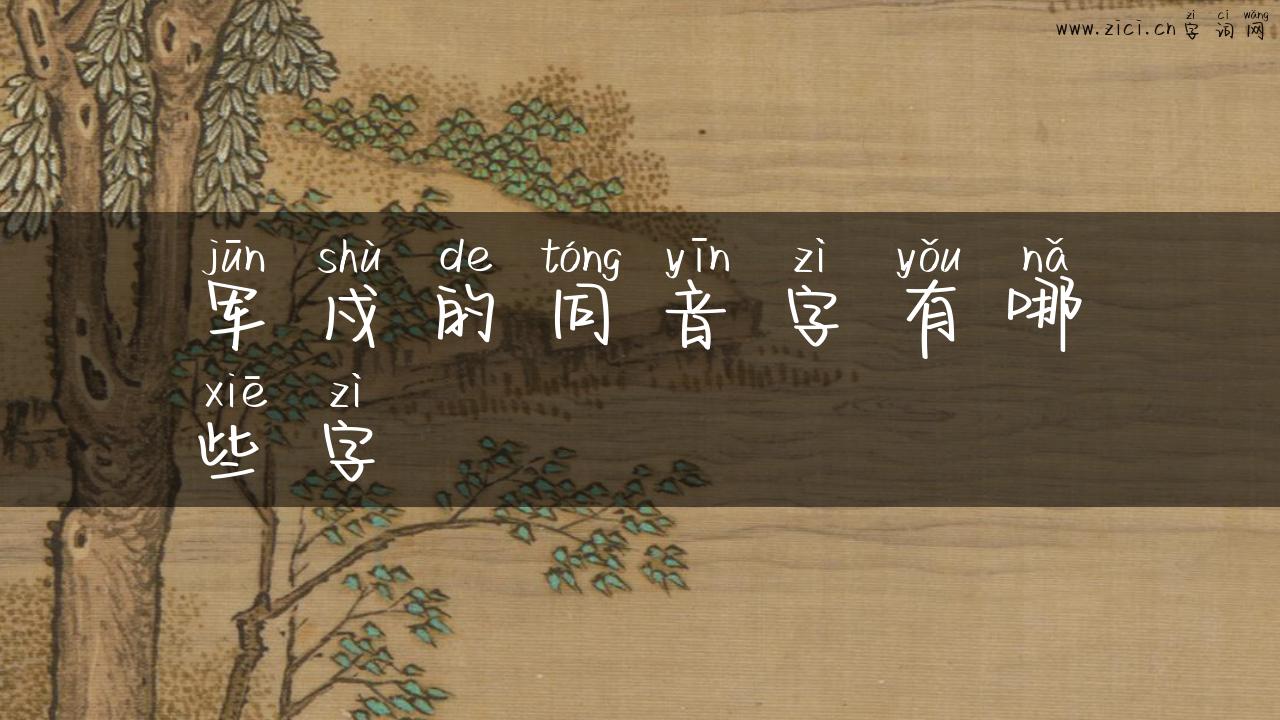 zì cí wǎng
www.zici.cn 字词网
jūn shù de tóng yīn zì yǒu nǎ
军戍的同音字有哪
xiē zì
些字